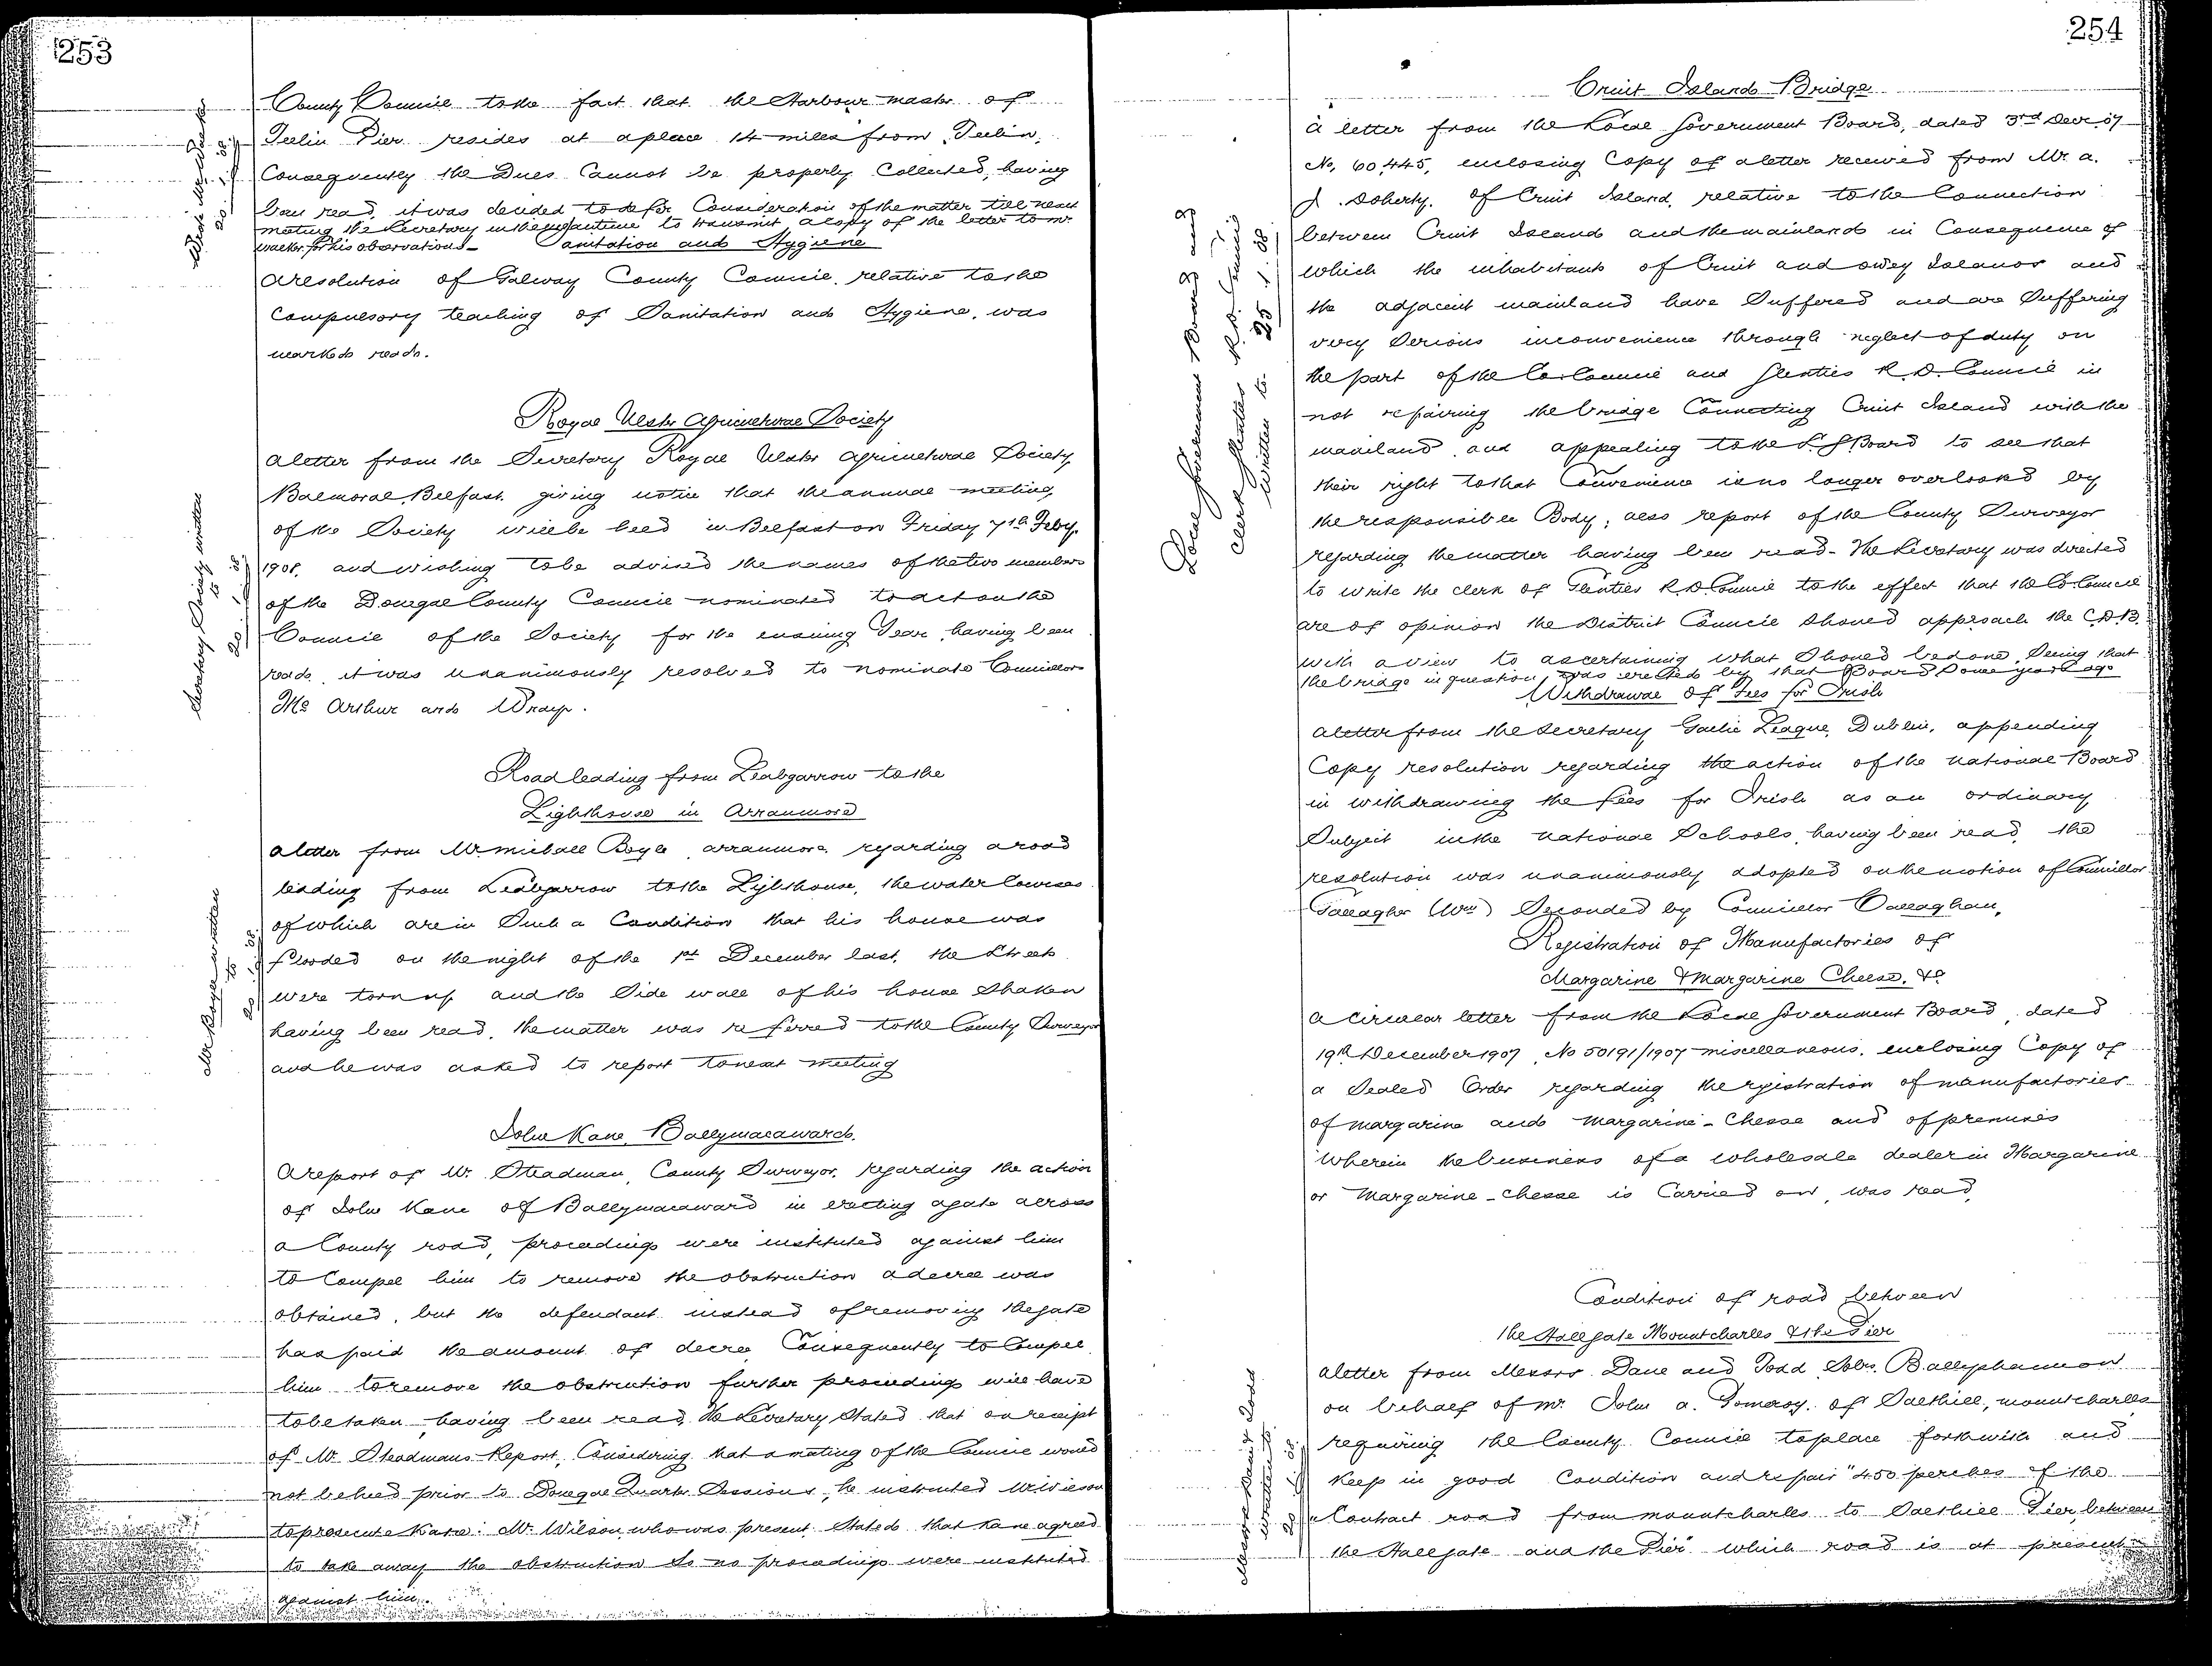 253
County Council to the fact that the Harbour master of
Teelin Pier resides at a place 14 miles from Teelin,
Consequently the Dues Cannot be properly Collected, having
been read, it was decided to defer Consideration of the matter till next
meeting the Secretary in the meantime to transmit a copy of the letter to Mr
for his observations -
Sanitation and Hygiene
A resolution of Galway County Council, relative to the
Compulsory teaching of Sanitation and Hygiene, was
marked read.
Royal Ulster Agricultural Society
A letter from the Secretary Royal Ulster Agricultural Society
Balmoral, Belfast, giving notice that the annual meeting
of the Society will be held in Belfast on Friday 7th Feby.
1908, and wishing to be advised the names of the two members
of the Donegal County Council nominated to act on the
Council of the Society for the ensuing Year, having been
read, it was unanimously resolved to nominate Councillors
Mc Arthur and Wray.
Secretary Society written
to
20.1.08
Road leading from Leabgarrow to the
Lighthouse in Arranmore
A letter from Mr. Michall Boyle, Arranmore, regarding a road
leading from Leabgarrow to the Lighthouse, the water Courses
of which are in Such a Condition that his house was
flooded on the night of the 1st December last, the Street
were torn up and the Side wall of his house Shaken
having been read, the matter was referred to the County Surveyor
and he was asked to report to next meeting
Mr Boyle written
to
20.1.08
John Kane, Ballymacaward.
A report of Mr. Steadman, County Surveyor, regarding the action
of John Kane of Ballymacaward in erecting a gate across
a County road, proceedings were instituted against him
to Compel him to remove the obstruction a decree was
obtained, but the defendant instead of removing the gate
has paid the amount of decree Consequently to Compel
him to remove the obstruction further proceedings will have
to be taken, having been read, the Secretary Stated that on receipt
of Mr Steadmans Report, Considering that a meeting of the Council would
not be held prior to Donegal Quarter Sessions, he instructed Mr Wilson
to prosecute Kane. Mr. Wilson who was present Stated that Kane agreed
to take away the obstruction So no proceedings were instituted
against him.
254
Cruit Island Bridge
A letter from the Local Government Board, dated 3rd Decr. 07
No. 60,445, enclosing Copy of a letter received from Mr. A.
J. Doherty, of Cruit Island, relative to the Connection
between Cruit Island and the mainland in Consequence of
which the inhabitants of Cruit and Owey Islands and
the adjacent mainland have Suffered and are Suffering
very Serious inconvenience through neglect of duty on
the part of the Co. Council and Glenties R.D. Council in
not repairing the bridge Connecting Cruit Island with the
mainland and appealing to the L.G. Board to see that
their right to that Convenience is no longer overlooked by
the responsible Body; also report of the County Surveyor
regarding the matter having been read - The Secretary was directed
to write the clerk of Glenties R.D. Council to the effect that the Co. Council
are of opinion the District Council should approach the C.D.B.
with a view to ascertaining what Should be done, Seeing that
the bridge in question was erected by that Board Some years ago
Local Government Board and
Clerk Glenties R.D. Council
written to 25.1.08
Withdrawal of Fees for Irish
A letter from the Secretary Gaelic League, Dublin, appending
Copy resolution regarding the action of the National Board
in withdrawing the fees for Irish as an ordinary
Subject in the National Schools, having been read, the
resolution was unanimously adopted on the motion of Councillor
Gallagher (Wm) Seconded by Councillor O'Callaghan,
Registration of Manufactories of
Margarine & Margarine Cheese, &c
A circular letter from the Local Government Board, dated
19th December 1907, No 50191/1907 Miscellaneous, enclosing Copy of
a Sealed Order regarding the registration of manufactories
of margarine and Margarine-Cheese and of premises
wherein the business of a wholesale dealer in Margarine
or Margarine-cheese is Carried on, was read,
Condition of road between
the Hallgate Mountcharles & the Pier
A letter from Messrs Dane and Todd, Solrs, Ballyshannon
on behalf of Mr. John A. Pomeroy, of Salthill, Mountcharles
requiring the County Council to place forthwith and
Keep in good Condition and repair "450 perches of the
"Contract road from Mountcharles to Salthill Pier, between
the Hallgate and the Pier" which road is at present
Messrs Dane & Todd
written to
20.1.08